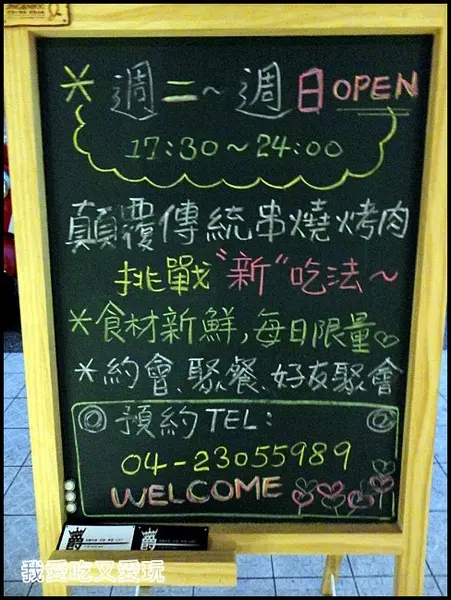 ＊週二～週日OPEN
17:30～24:00
顛覆傳統串燒烤肉
挑戰"新"吃法～
＊食材新鮮,每日限量
＊約會、聚餐、好友聚會
◎預約TEL:
04-23055989
WELCOME
爵
爵
我愛吃又愛玩